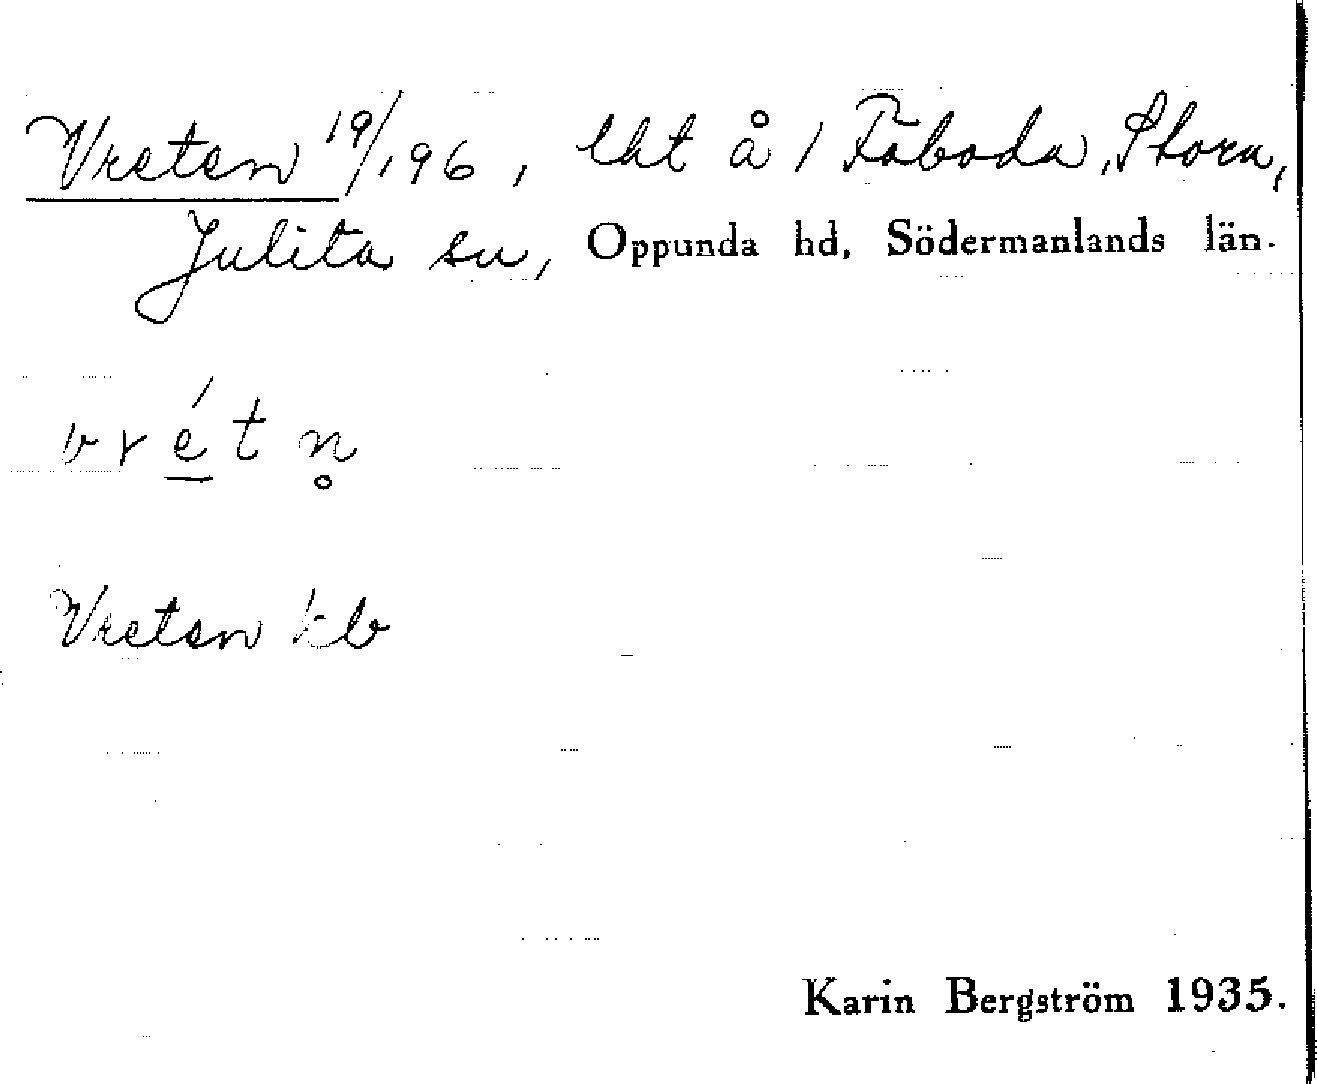 Vreten 19/196, lht å 1 Fåboda, Stora,
Julita sn, Oppunda hd, Södermanlands län.
vrétn̥
Vreten kb
Karin Bergström 1935.